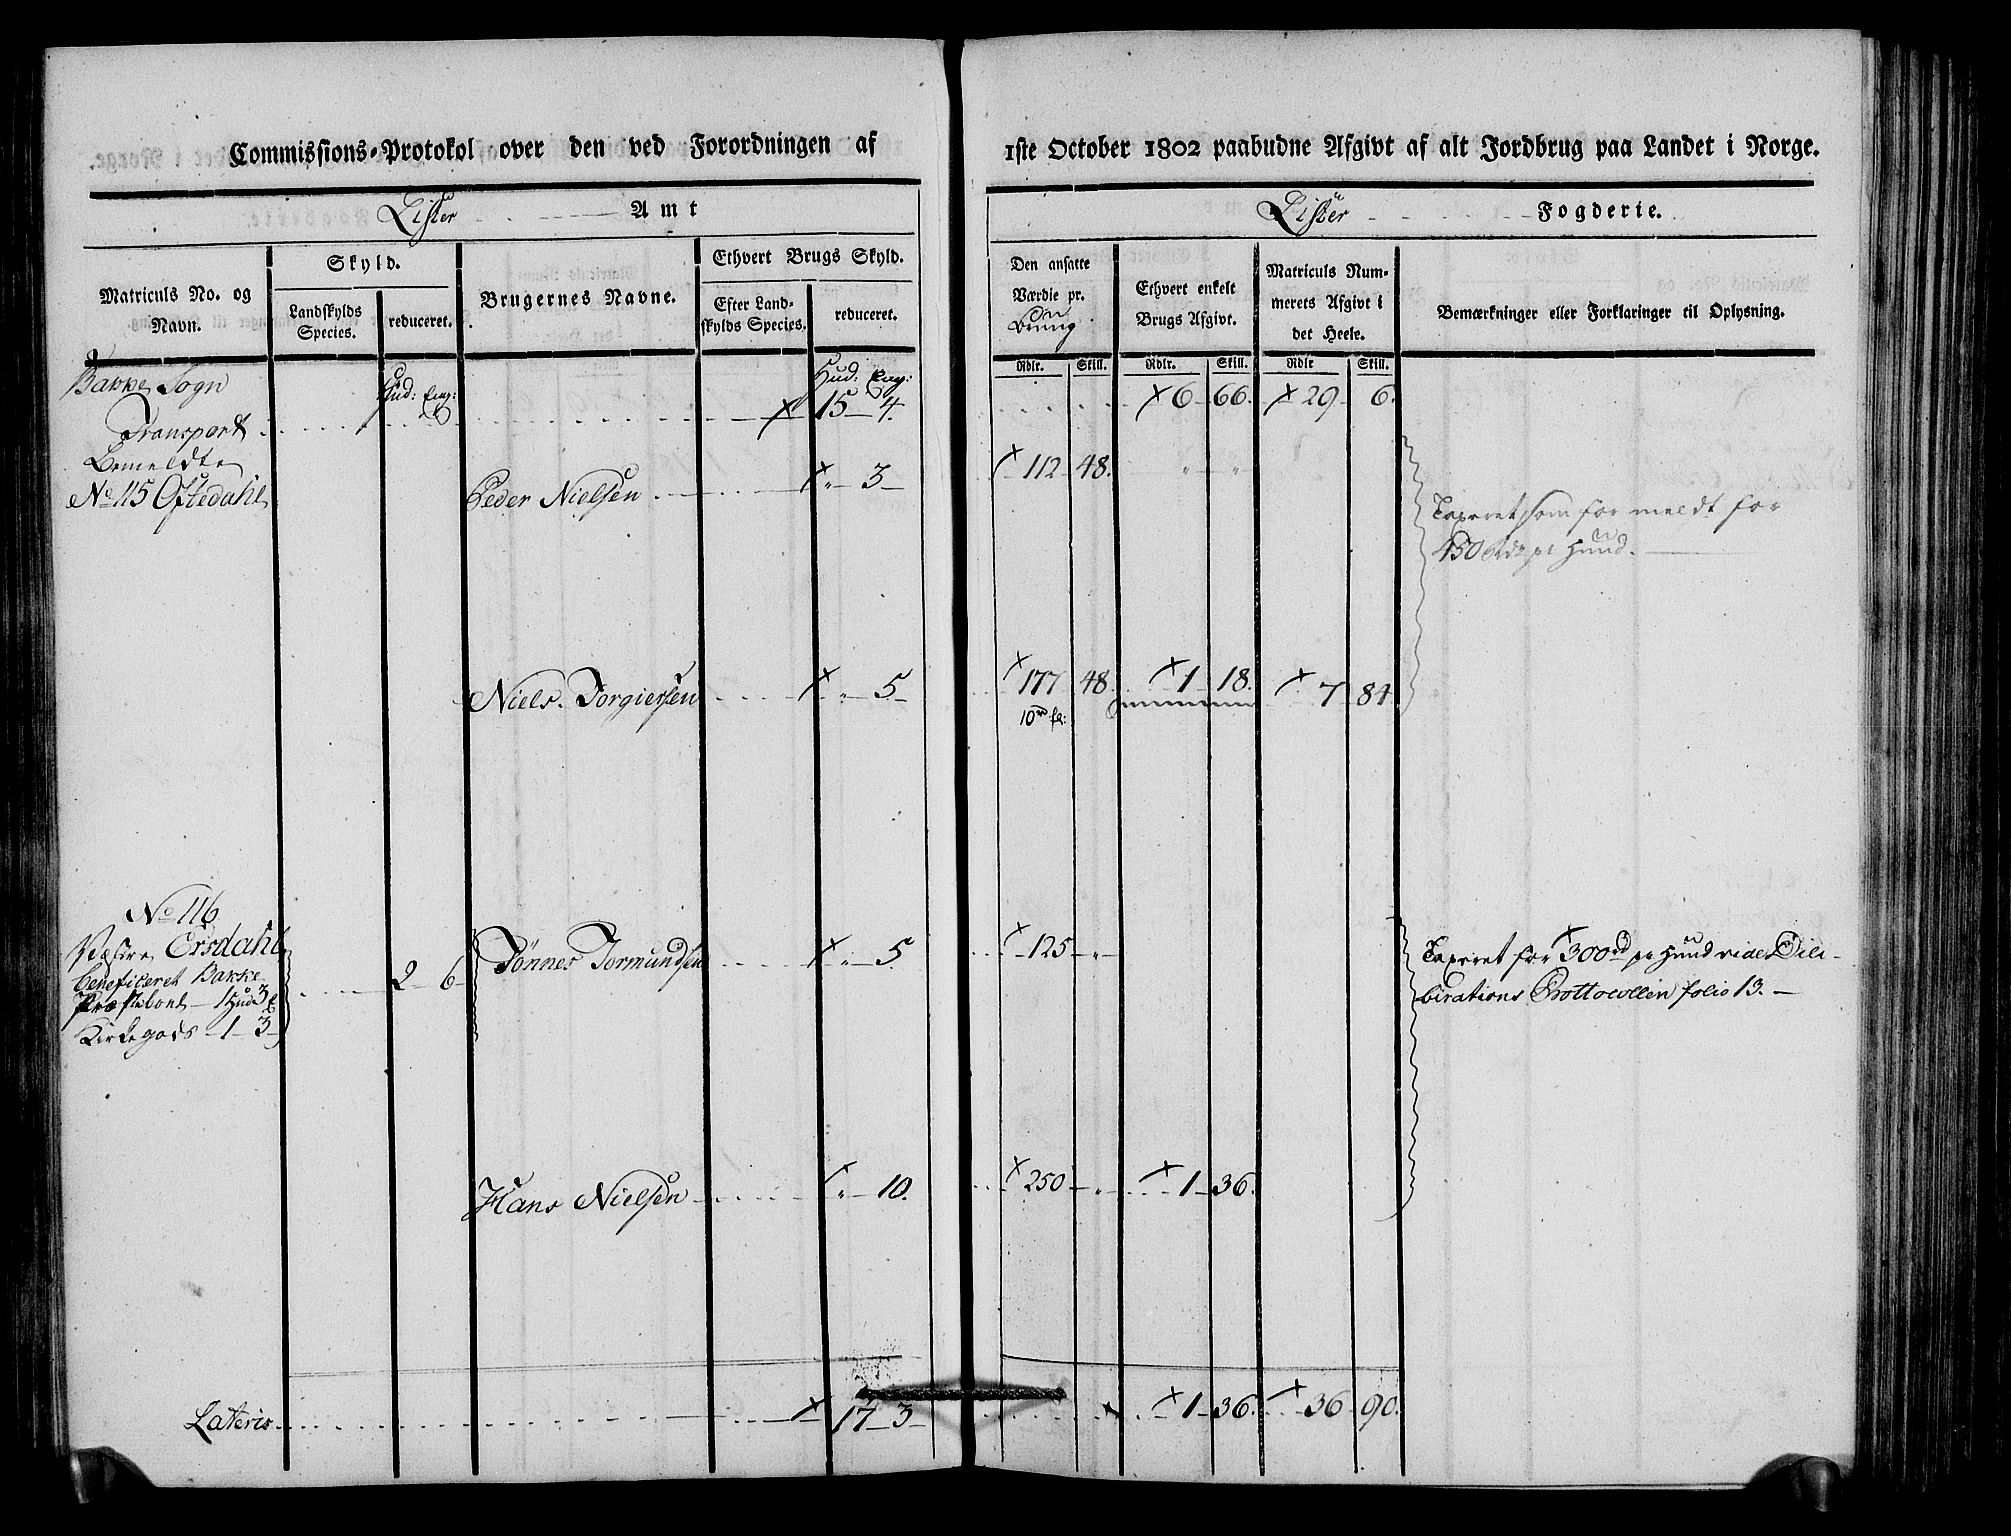 Commissions-Protokol over den ved Forordningen af
1ste October 1802 paabudne Afgivt af alt Jordbrug paa Landet i Norge.
Lister Amt
Lister Fogderie.
Matriculs No. og Navn.
Skyld.
Landskylds Species.
reduceret.
Brugernes Navne.
Ethvert Brugs Skyld.
Efter Landskylds Species.
reduceret.
Den ansatte Værdie pr. Brug
Rdlr. Skill.
Ethvert enkelt Brugs Afgivt.
Rdlr. Skill.
Matriculs Nummerets Afgivt i det Heele.
Rdlr Skill.
Bemærkninger eller Forklaringer til Oplysning.
Bakke Sogn
Hud: Eng: Hud: Eng:
Transport 15 4. 6 66. 29 6.
Bemeldte
No 115 Oftedahl Peder Nielsen " 3 112 48. " "
Taxeret som formeldt for
450 Rdr pr Huud.
Niels Torgiersen " 5 177 48. 1 18. 7 84
No 116
Vestre Ersdahl Tønnes Tormundsen " 5. 125 "
beneficeret Bakke 2 6
Præstebord 1 Hud 3 E
Kirkegods 1 3
Taxeret for 300 rd pr Huud vide Deli-
birations Prottocollen folio 13.
Hans Nielsen " 10. 250 " 1 36.
Lateris 17 3 1 36. 36 90.